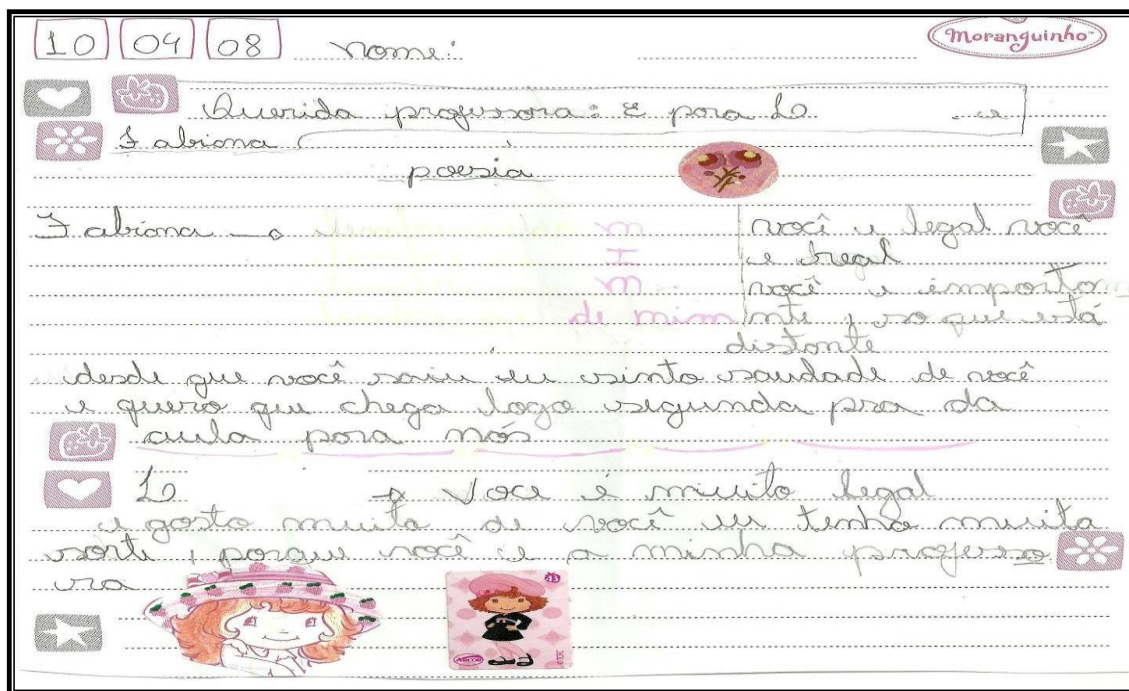 10 04 08 nome:
Moranguinho
Querida professora: E para Lo e
Fabiana
poesia
Fabiana → você e legal você
e
você e importan
nte, so que está
distante
de mim
desde que você saiu eu sinto saudade de você
e quero que chega logo segunda pra da
aula para nós
Lo → Voce é muito legal
e gosto muito de você eu tenho muita
sorte, porque você e a minha professo
ra